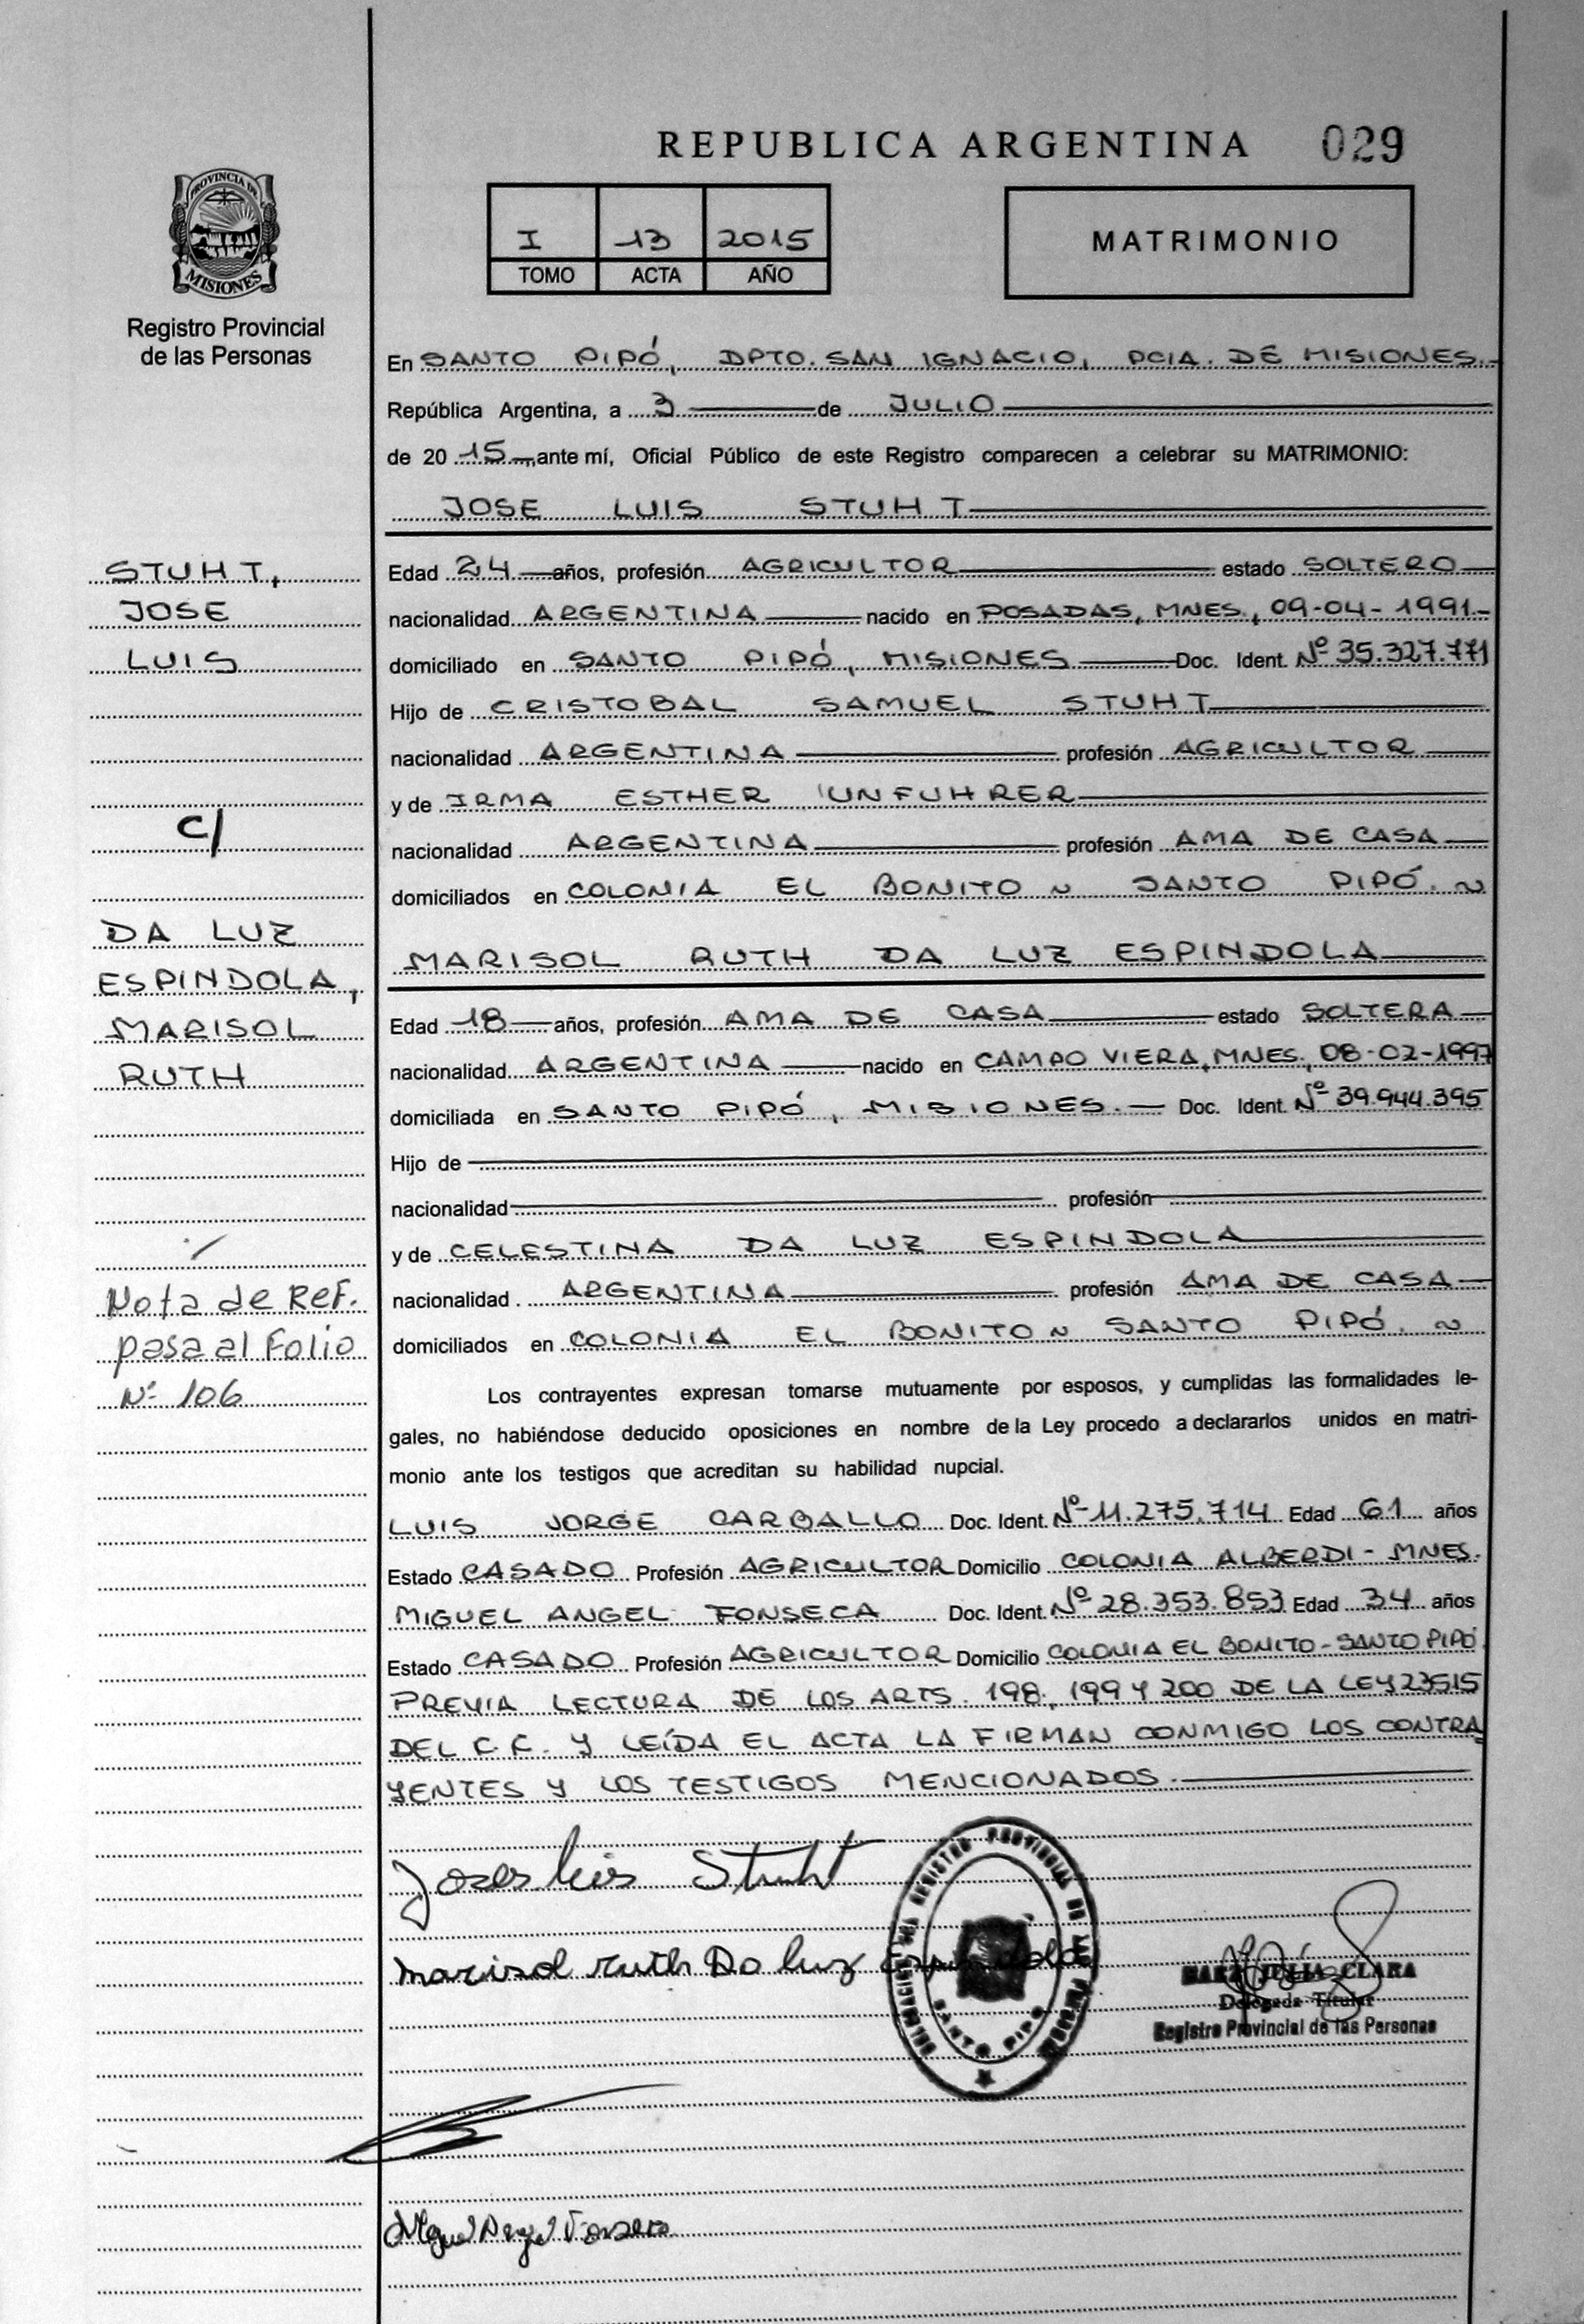 REPUBLICA ARGENTINA 029
PROVINCIA DE
MISIONES
Registro Provincial
de las Personas
I 13 2015
TOMO ACTA AÑO
MATRIMONIO
En SANTO PIPÓ, DPTO. SAN IGNACIO, PCIA. DE MISIONES.-
República Argentina, a 3 de JULIO
de 20 15 ante mí, Oficial Público de este Registro comparecen a celebrar su MATRIMONIO:
JOSE LUIS STUHT
STUHT,
JOSE
LUIS
C/
DA LUZ
ESPINDOLA,
MARISOL
RUTH
Nota de Ref.
pasa al Folio
Nº 106
Edad 24 años, profesión AGRICULTOR estado SOLTERO
nacionalidad ARGENTINA nacido en POSADAS, MNES., 09-04-1991.-
domiciliado en SANTO PIPÓ, MISIONES Doc. Ident. Nº 35.327.771
Hijo de CRISTOBAL SAMUEL STUHT
nacionalidad ARGENTINA profesión AGRICULTOR
y de IRMA ESTHER UNFUHRER
nacionalidad ARGENTINA profesión AMA DE CASA
domiciliados en COLONIA EL BONITO ~ SANTO PIPÓ. ~
MARISOL RUTH DA LUZ ESPINDOLA
Edad 18 años, profesión AMA DE CASA estado SOLTERA
nacionalidad ARGENTINA nacido en CAMPO VIERA, MNES., 08-02-1997
domiciliada en SANTO PIPÓ, MISIONES.- Doc. Ident. Nº 39.944.395
Hijo de
nacionalidad profesión
y de CELESTINA DA LUZ ESPINDOLA
nacionalidad ARGENTINA profesión AMA DE CASA
domiciliados en COLONIA EL BONITO ~ SANTO PIPÓ. ~
Los contrayentes expresan tomarse mutuamente por esposos, y cumplidas las formalidades le-
gales, no habiéndose deducido oposiciones en nombre de la Ley procedo a declararlos unidos en matri-
monio ante los testigos que acreditan su habilidad nupcial.
LUIS JORGE CARBALLO Doc. Ident. Nº 11.275.714 Edad 61 años
Estado CASADO Profesión AGRICULTOR Domicilio COLONIA ALBERDI - MNES.
MIGUEL ANGEL FONSECA Doc. Ident. Nº 28.353.853 Edad 34 años
Estado CASADO Profesión AGRICULTOR Domicilio COLONIA EL BONITO - SANTO PIPÓ.
PREVIA LECTURA DE LOS ARTS. 198, 199 Y 200 DE LA LEY 23515
DEL C.C. Y LEÍDA EL ACTA LA FIRMAN CONMIGO LOS CONTRA
YENTES Y LOS TESTIGOS MENCIONADOS.
Jose Luis Stuht
Marisol Ruth Da Luz Espindola
REGISTRO PROVINCIAL DE LAS PERSONAS
SANTO PIPO
JULIA CLARA
Delegada Titular
Registro Provincial de las Personas
Miguel Angel Fonseca